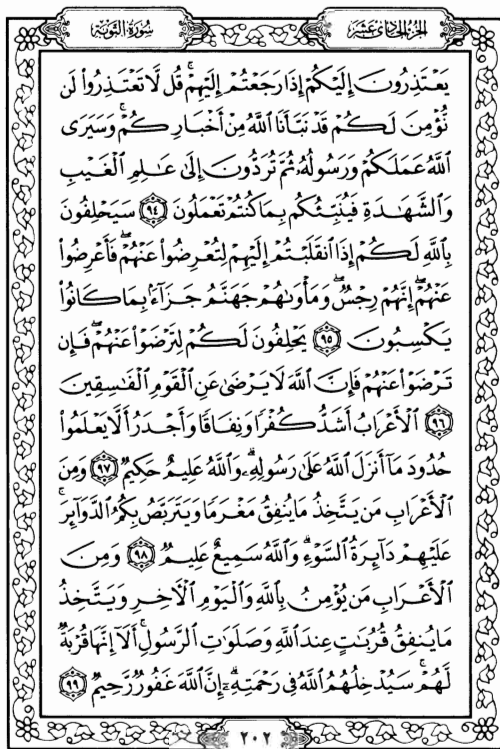 الجزء الحادي عشر
سورة التوبة
يَعْتَذِرُونَ إِلَيْكُمْ إِذَا رَجَعْتُمْ إِلَيْهِمْ ۚ قُل لَّا تَعْتَذِرُوا۟ لَن
نُّؤْمِنَ لَكُمْ قَدْ نَبَّأَنَا ٱللَّهُ مِنْ أَخْبَارِكُمْ ۚ وَسَيَرَى
ٱللَّهُ عَمَلَكُمْ وَرَسُولُهُۥ ثُمَّ تُرَدُّونَ إِلَىٰ عَٰلِمِ ٱلْغَيْبِ
وَٱلشَّهَٰدَةِ فَيُنَبِّئُكُم بِمَا كُنتُمْ تَعْمَلُونَ ٩٤ سَيَحْلِفُونَ
بِٱللَّهِ لَكُمْ إِذَا ٱنقَلَبْتُمْ إِلَيْهِمْ لِتُعْرِضُوا۟ عَنْهُمْ ۖ فَأَعْرِضُوا۟
عَنْهُمْ ۖ إِنَّهُمْ رِجْسٌ ۖ وَمَأْوَىٰهُمْ جَهَنَّمُ جَزَآءًۢ بِمَا كَانُوا۟
يَكْسِبُونَ ٩٥ يَحْلِفُونَ لَكُمْ لِتَرْضَوْا۟ عَنْهُمْ ۖ فَإِن
تَرْضَوْا۟ عَنْهُمْ فَإِنَّ ٱللَّهَ لَا يَرْضَىٰ عَنِ ٱلْقَوْمِ ٱلْفَٰسِقِينَ
٩٦ ٱلْأَعْرَابُ أَشَدُّ كُفْرًا وَنِفَاقًا وَأَجْدَرُ أَلَّا يَعْلَمُوا۟
حُدُودَ مَآ أَنزَلَ ٱللَّهُ عَلَىٰ رَسُولِهِۦ ۗ وَٱللَّهُ عَلِيمٌ حَكِيمٌ ٩٧ وَمِنَ
ٱلْأَعْرَابِ مَن يَتَّخِذُ مَا يُنفِقُ مَغْرَمًا وَيَتَرَبَّصُ بِكُمُ ٱلدَّوَآئِرَ ۚ
عَلَيْهِمْ دَآئِرَةُ ٱلسَّوْءِ ۗ وَٱللَّهُ سَمِيعٌ عَلِيمٌ ٩٨ وَمِنَ
ٱلْأَعْرَابِ مَن يُؤْمِنُ بِٱللَّهِ وَٱلْيَوْمِ ٱلْءَاخِرِ وَيَتَّخِذُ
مَا يُنفِقُ قُرُبَٰتٍ عِندَ ٱللَّهِ وَصَلَوَٰتِ ٱلرَّسُولِ ۚ أَلَآ إِنَّهَا قُرْبَةٌ
لَّهُمْ ۚ سَيُدْخِلُهُمُ ٱللَّهُ فِى رَحْمَتِهِۦٓ ۗ إِنَّ ٱللَّهَ غَفُورٌ رَّحِيمٌ ٩٩
٢٠٢